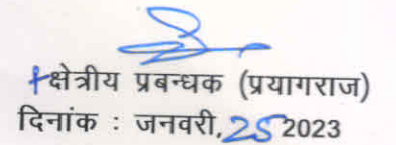 क्षेत्रीय प्रबन्धक (प्रयागराज)
दिनांक : जनवरी, 25 2023